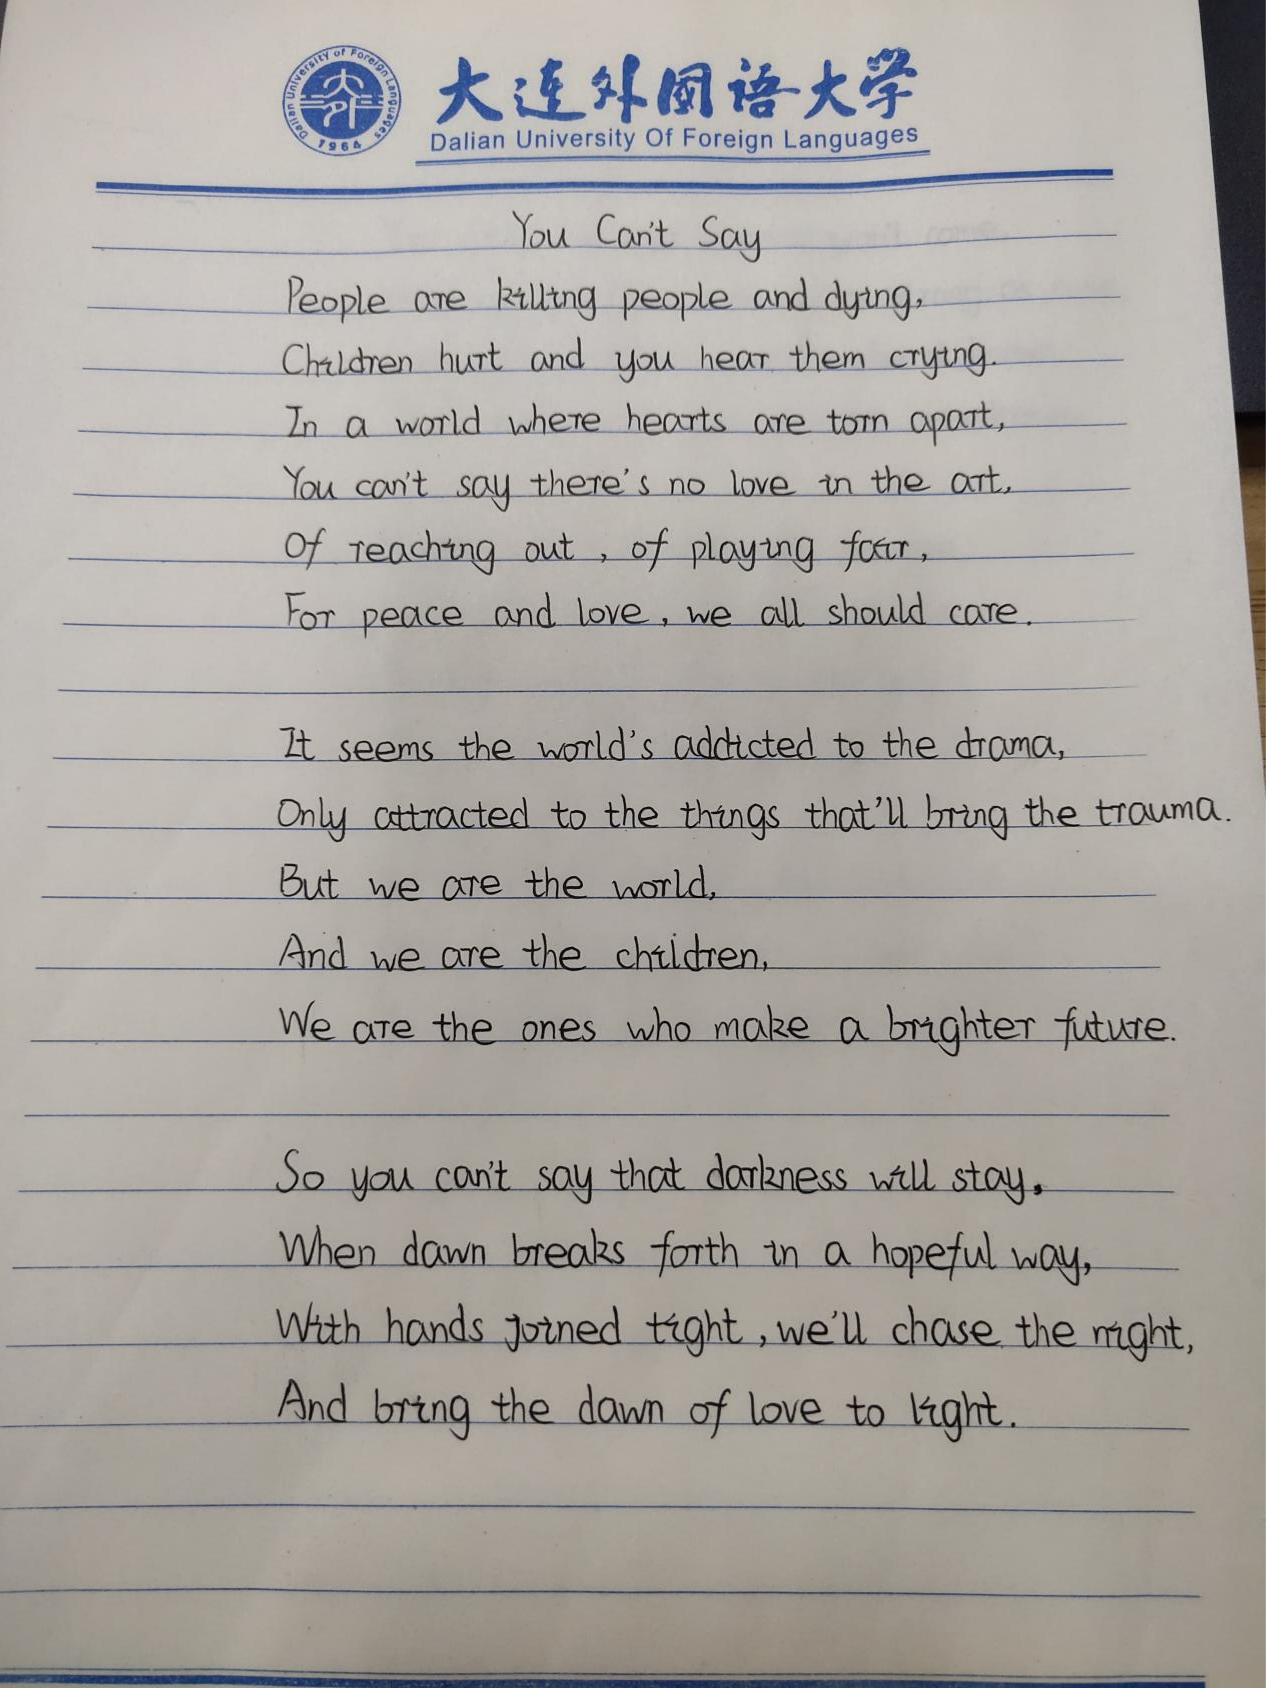 Dalian University of Foreign Languages
1964
大连外国语大学
Dalian University Of Foreign Languages
You Can't Say
People are killing people and dying,
Children hurt and you hear them crying.
In a world where hearts are torn apart,
You can't say there's no love in the art,
Of reaching out, of playing fair,
For peace and love, we all should care.
It seems the world's addicted to the drama,
Only attracted to the things that'll bring the trauma.
But we are the world,
And we are the children,
We are the ones who make a brighter future.
So you can't say that darkness will stay,
When dawn breaks forth in a hopeful way,
With hands joined tight, we'll chase the night,
And bring the dawn of love to light.